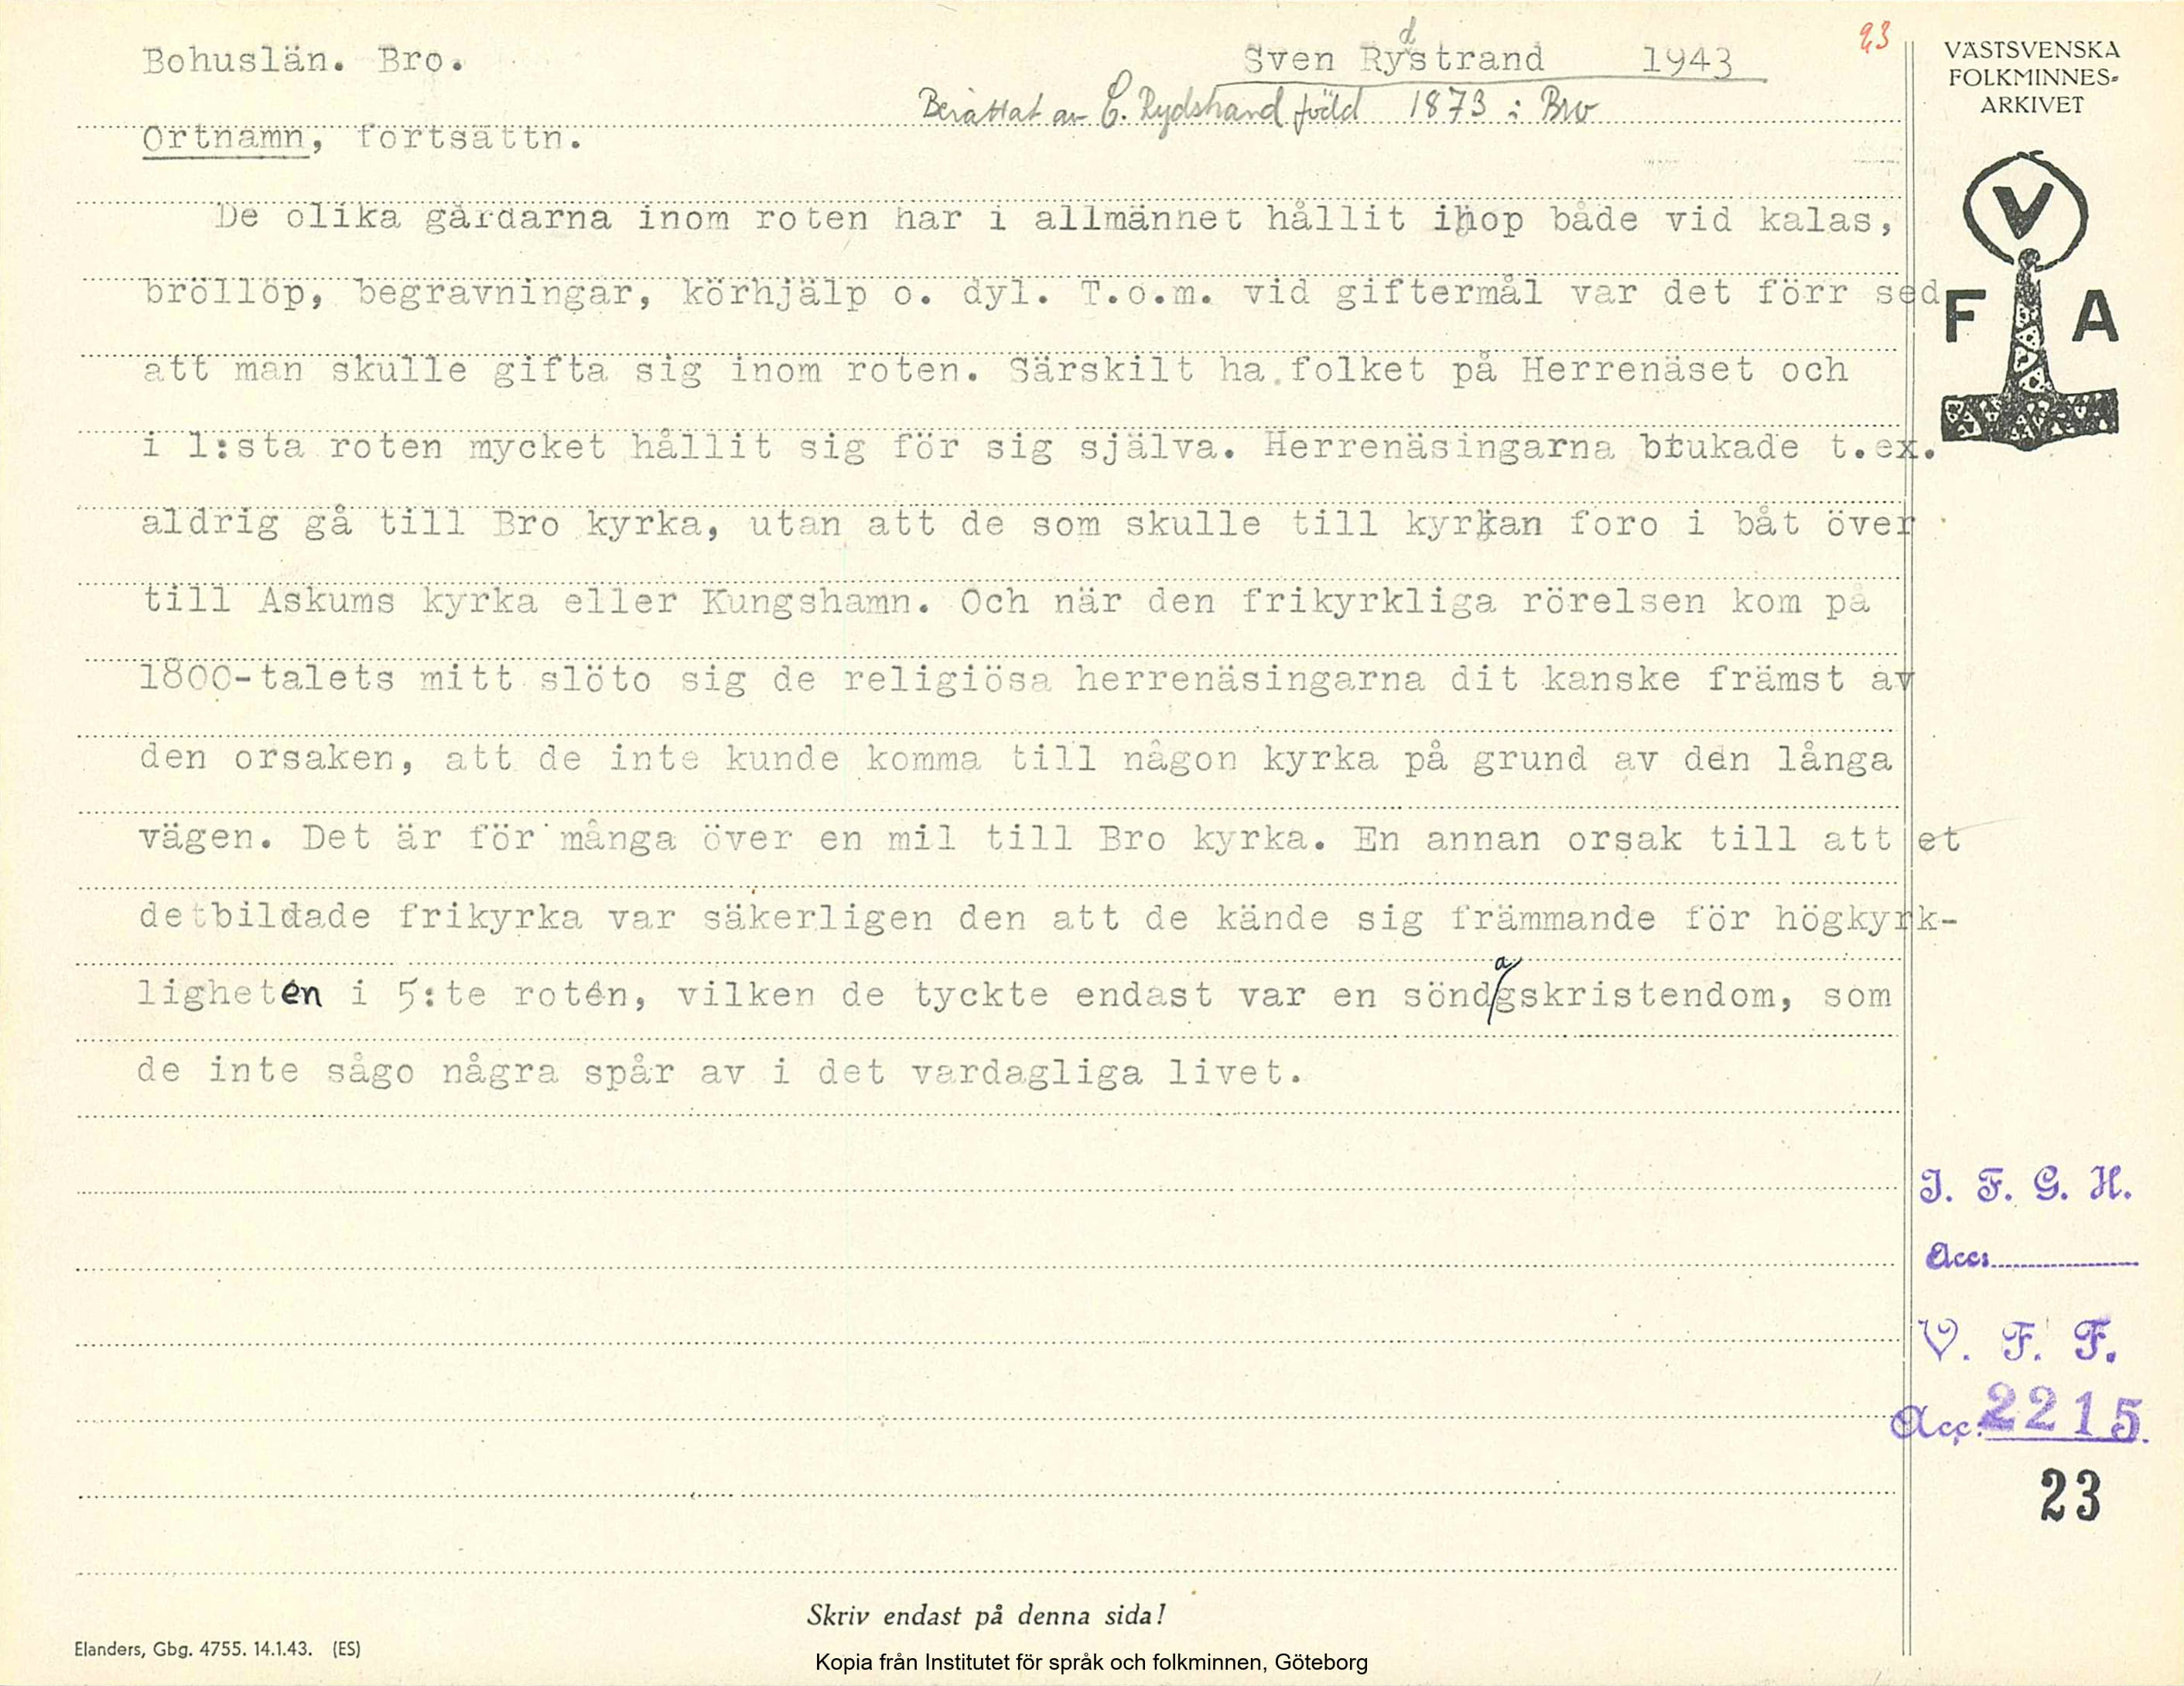 Bohuslän. Bro.
Sven Rydstrand 1943
23
Berättat av C. Rydstrand född 1873 i Bro
Ortnamn, fortsättn.
De olika gårdarna inom roten har i allmännet hållit ihop både vid kalas,
bröllöp, begravningar, körhjälp o. dyl. T.o.m. vid giftermål var det förr sed
att man skulle gifta sig inom roten. Särskilt ha folket på Herrenäset och
i 1:sta roten mycket hållit sig för sig själva. Herrenäsingarna brukade t.ex.
aldrig gå till Bro kyrka, utan att de som skulle till kyrkan foro i båt över
till Askums kyrka eller Kungshamn. Och när den frikyrkliga rörelsen kom på
1800-talets mitt slöto sig de religiösa herrenäsingarna dit kanske främst av
den orsaken, att de inte kunde komma till någon kyrka på grund av den långa
vägen. Det är för många över en mil till Bro kyrka. En annan orsak till att et
detbildade frikyrka var säkerligen den att de kände sig främmande för högkyrk-
ligheten i 5:te roten, vilken de tyckte endast var en söndagskristendom, som
de inte sågo några spår av i det vardagliga livet.
VÄSTSVENSKA
FOLKMINNES-
ARKIVET
V
F A
I. F. G. H.
Acc.
V. F. F.
Acc. 2215.
23
Skriv endast på denna sida!
Elanders, Gbg. 4755. 14.1.43. (ES)
Kopia från Institutet för språk och folkminnen, Göteborg